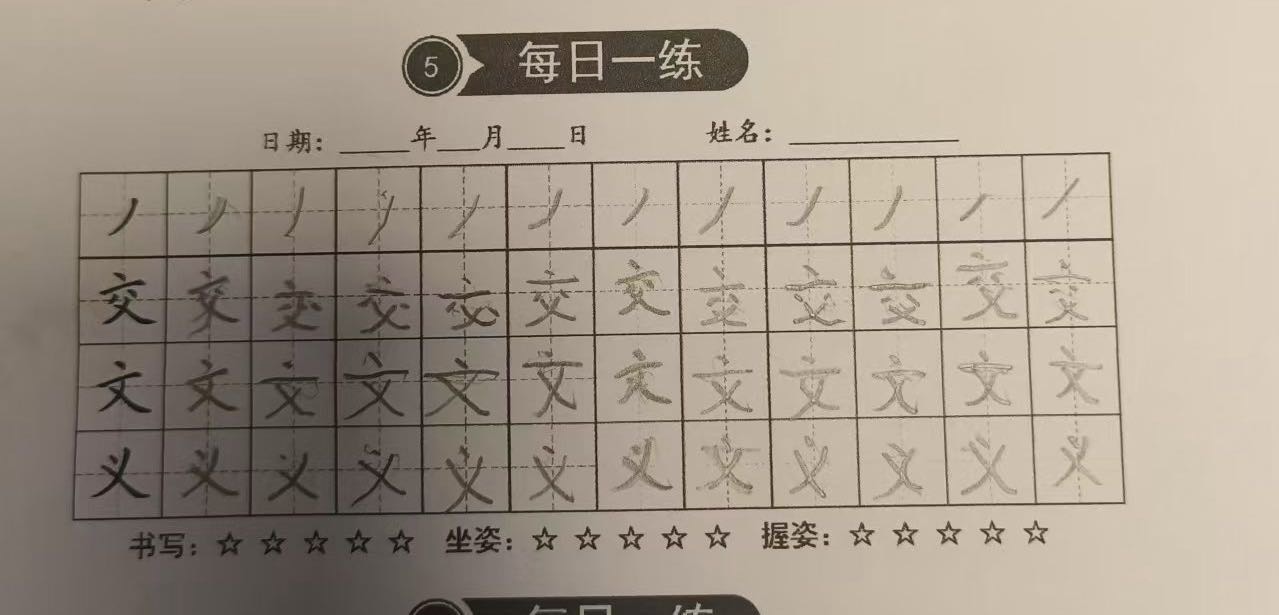 5 每日一练
日期：_____年___月____日 姓名：____________
丿 丿 丿 丿 丿 丿 丿 丿 丿 丿 丿 丿
交 交 交 交 交 交 交 交 交 交 交 交
文 文 文 文 文 文 文 文 文 文 文 文
义 义 义 义 义 义 义 义 义 义 义 义
书写：☆ ☆ ☆ ☆ ☆ 坐姿：☆ ☆ ☆ ☆ ☆ 握姿：☆ ☆ ☆ ☆ ☆
每日一练